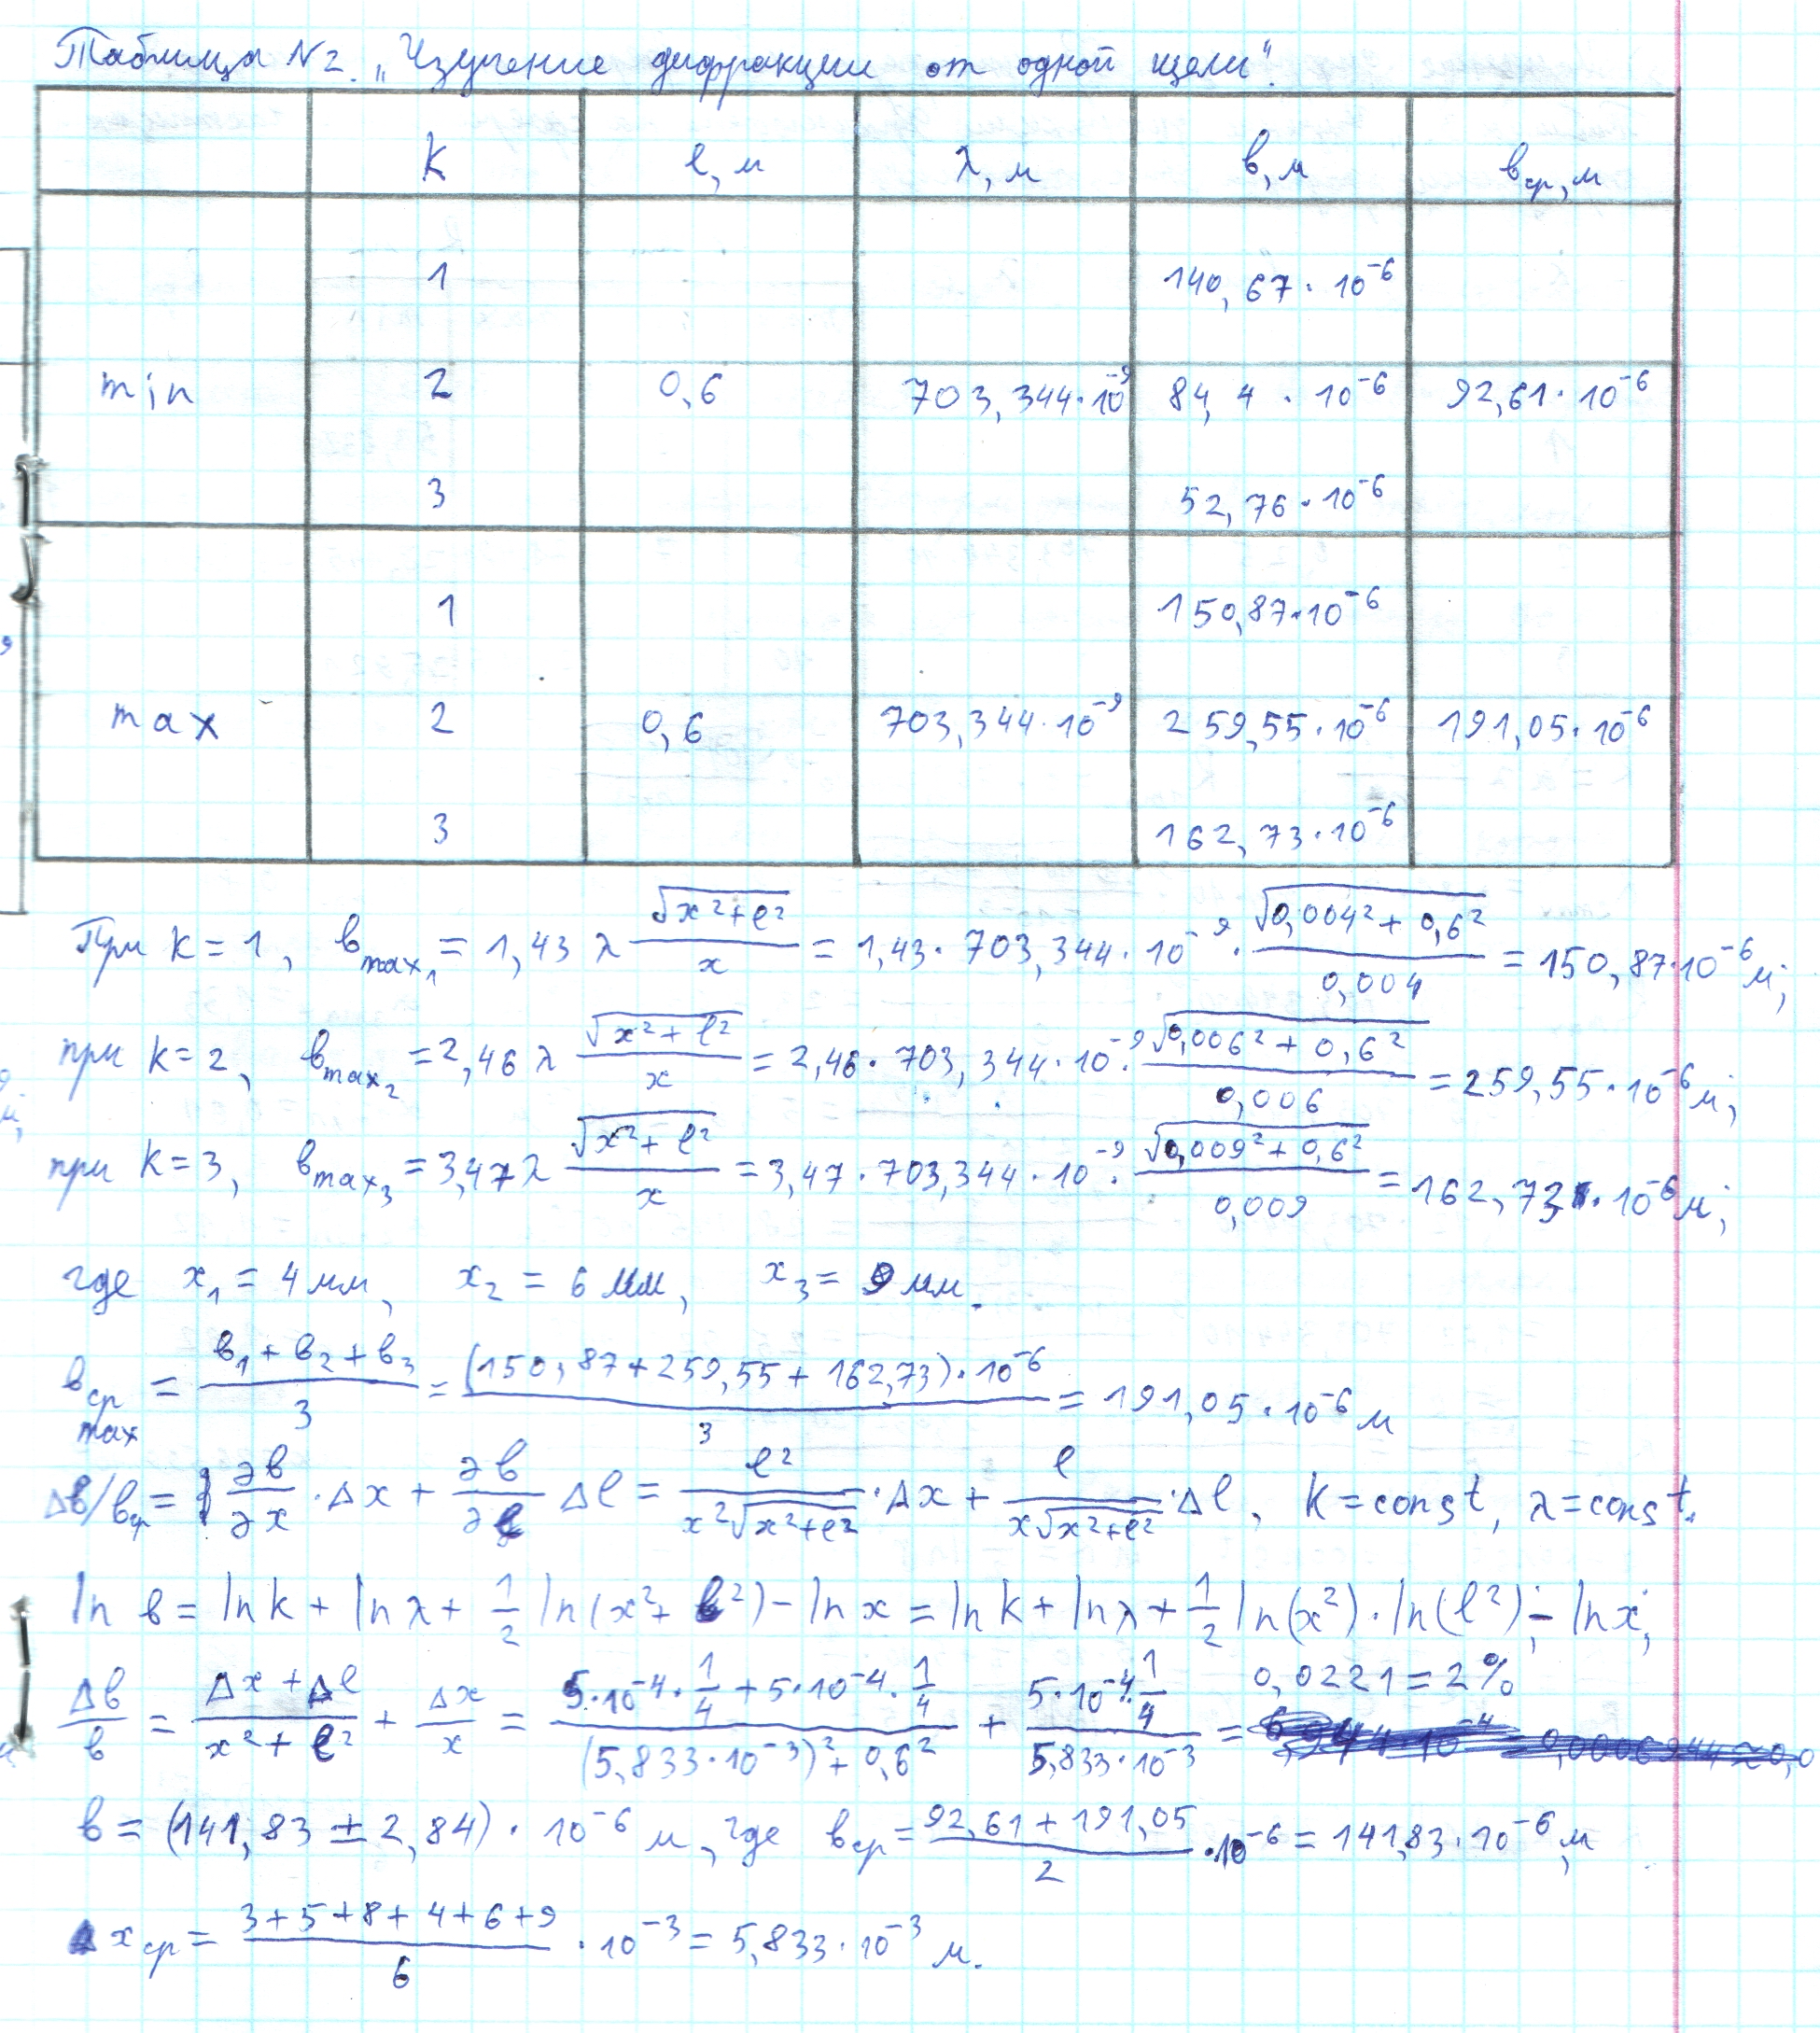 Таблица N2. „Изучение дифракции от одной щели".
k l, м λ, м в, м вср, м
1 140,67·10⁻⁶
min 2 0,6 703,344·10⁻⁹ 84,4 · 10⁻⁶ 92,61·10⁻⁶
3 52,76·10⁻⁶
1 150,87·10⁻⁶
max 2 0,6 703,344·10⁻⁹ 259,55·10⁻⁶ 191,05·10⁻⁶
3 162,73·10⁻⁶
При k = 1, вmax₁ = 1,43 λ √(x²+l²)/x = 1,43 · 703,344 · 10⁻⁹ · √(0,004² + 0,6²)/0,004 = 150,87·10⁻⁶ м;
при k = 2, вmax₂ = 2,46 λ √(x²+l²)/x = 2,46 · 703,344 · 10⁻⁹ · √(0,006² + 0,6²)/0,006 = 259,55·10⁻⁶ м;
при k = 3, вmax₃ = 3,47 λ √(x²+l²)/x = 3,47 · 703,344 · 10⁻⁹ · √(0,009² + 0,6²)/0,009 = 162,73·10⁻⁶ м;
где x₁ = 4 мм, x₂ = 6 мм, x₃ = 9 мм.
вср max = (в₁ + в₂ + в₃)/3 = (150,87 + 259,55 + 162,73)·10⁻⁶/3 = 191,05·10⁻⁶ м
Δв/вср = ∂в/∂x · Δx + ∂в/∂l Δl = l²/(x²√(x²+l²)) · Δx + l/(x√(x²+l²)) · Δl, k = const, λ = const.
ln в = ln k + ln λ + 1/2 ln(x² + l²) − ln x = ln k + ln λ + 1/2 ln(x²) · ln(l²) − ln x;
Δв/в = (Δx + Δl)/(x² + l²) + Δx/x = (5·10⁻⁴·1/4 + 5·10⁻⁴·1/4)/((5,833·10⁻³)² + 0,6²) + (5·10⁻⁴·1/4)/(5,833·10⁻³) = 0,0221 = 2%
в = (141,83 ± 2,84) · 10⁻⁶ м, где вср = (92,61 + 191,05)/2 · 10⁻⁶ = 141,83·10⁻⁶ м
xср = (3+5+8+4+6+9)/6 · 10⁻³ = 5,833·10⁻³ м.